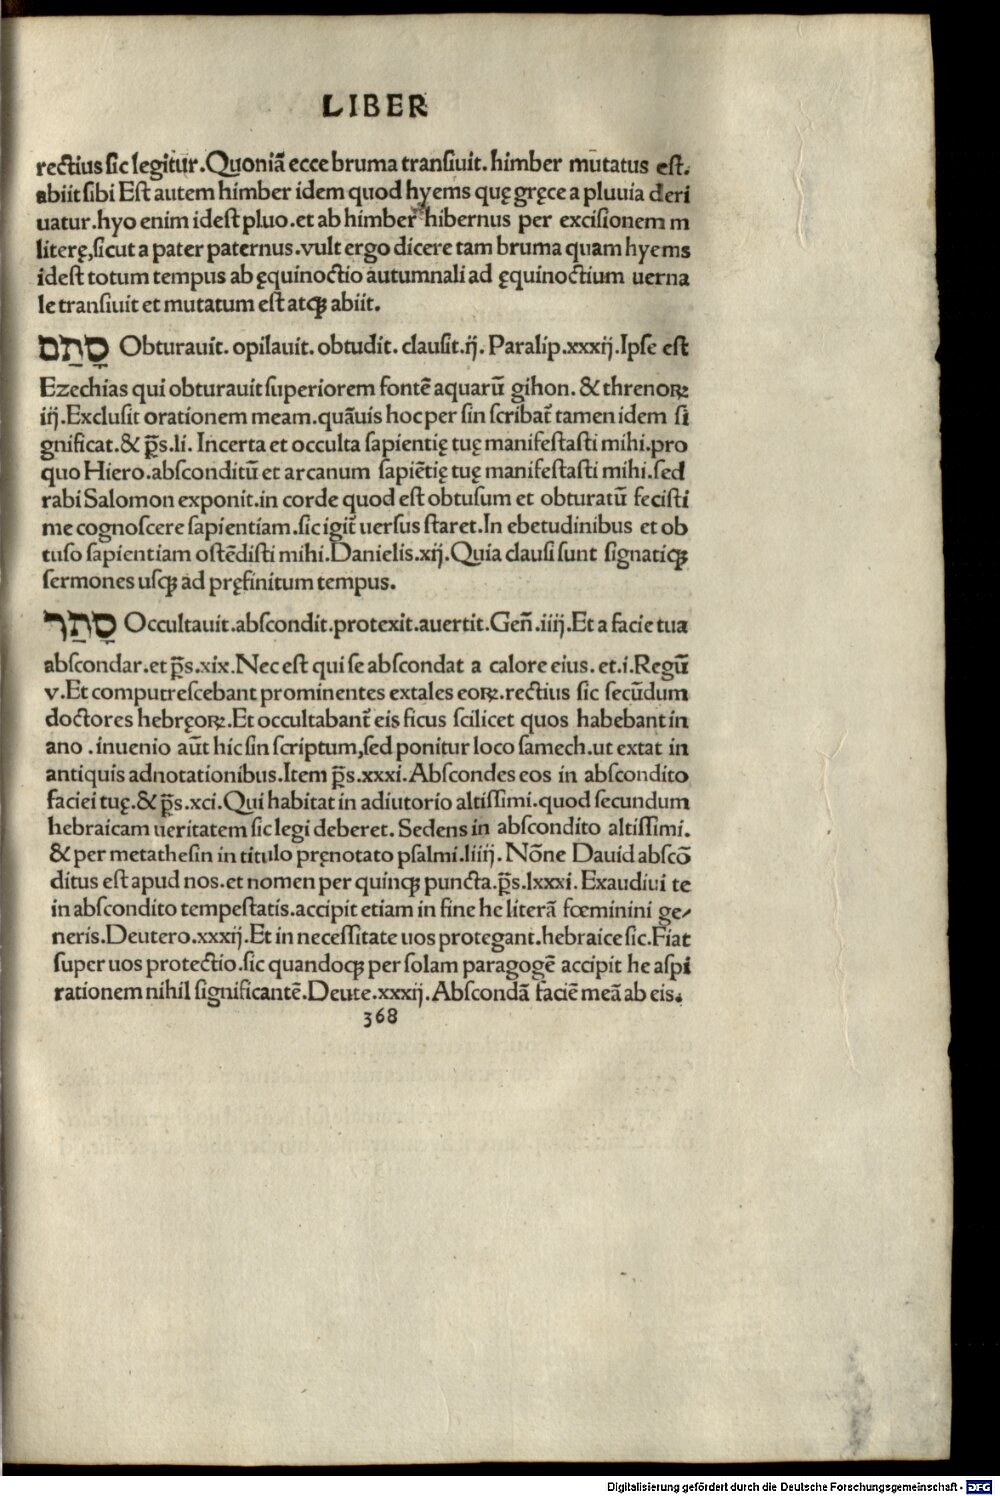 LIBER
rectius sic legitur.Quoniã ecce bruma transiuit.himber mutatus est.
abiit sibi Est autem himber idem quod hyems quę gręce a pluuia deri
uatur.hyo enim idest pluo.et ab himber hibernus per excisionem m
literę,sicut a pater paternus.vult ergo dicere tam bruma quam hyems
idest totum tempus ab ęquinoctio autumnali ad ęquinoctium uerna
le transiuit et mutatum est atqꝫ abiit.
סָתַם Obturauit. opilauit. obtudit. clausit.ij. Paralip.xxxij.Ipse est
Ezechias qui obturauit superiorem fontẽ aquarũ gihon. & threnoꝝ
iij.Exclusit orationem meam.quãuis hoc per sin scribat̃ tamen idem si
gnificat.& p̃s.li. Incerta et occulta sapientię tuę manifestasti mihi.pro
quo Hiero.absconditũ et arcanum sapiẽtię tuę manifestasti mihi.sed
rabi Salomon exponit.in corde quod est obtusum et obturatũ fecisti
me cognoscere sapientiam.sic igit̃ uersus staret.In ebetudinibus et ob
tuso sapientiam ostẽdisti mihi.Danielis.xij.Quia clausi sunt signatiqꝫ
sermones usqꝫ ad pręfinitum tempus.
סָתַר Occultauit.abscondit.protexit.auertit.Geñ.iiij.Et a facie tua
abscondar.et p̃s.xix.Nec est qui se abscondat a calore eius. et.i.Regũ
v.Et computrescebant prominentes extales eoꝝ.rectius sic secũdum
doctores hebręoꝝ.Et occultabant̃ eis ficus scilicet quos habebant in
ano .inuenio aũt hic sin scriptum,sed ponitur loco samech.ut extat in
antiquis adnotationibus.Item p̃s.xxxi.Abscondes eos in abscondito
faciei tuę.& p̃s.xci.Qui habitat in adiutorio altissimi.quod secundum
hebraicam ueritatem sic legi deberet. Sedens in abscondito altissimi.
& per metathesin in titulo pręnotato psalmi.liiij. Nõne Dauid abscõ
ditus est apud nos.et nomen per quinqꝫ puncta.p̃s.lxxxi. Exaudiui te
in abscondito tempestatis.accipit etiam in fine he literã fœminini ge⸗
neris.Deutero.xxxij.Et in necessitate uos protegant.hebraice sic.Fiat
super uos protectio.sic quandoqꝫ per solam paragogẽ accipit he aspi
rationem nihil significantẽ.Deute.xxxij.Abscondã faciẽ meã ab eis.
368
Digitalisierung gefördert durch die Deutsche Forschungsgemeinschaft - DFG